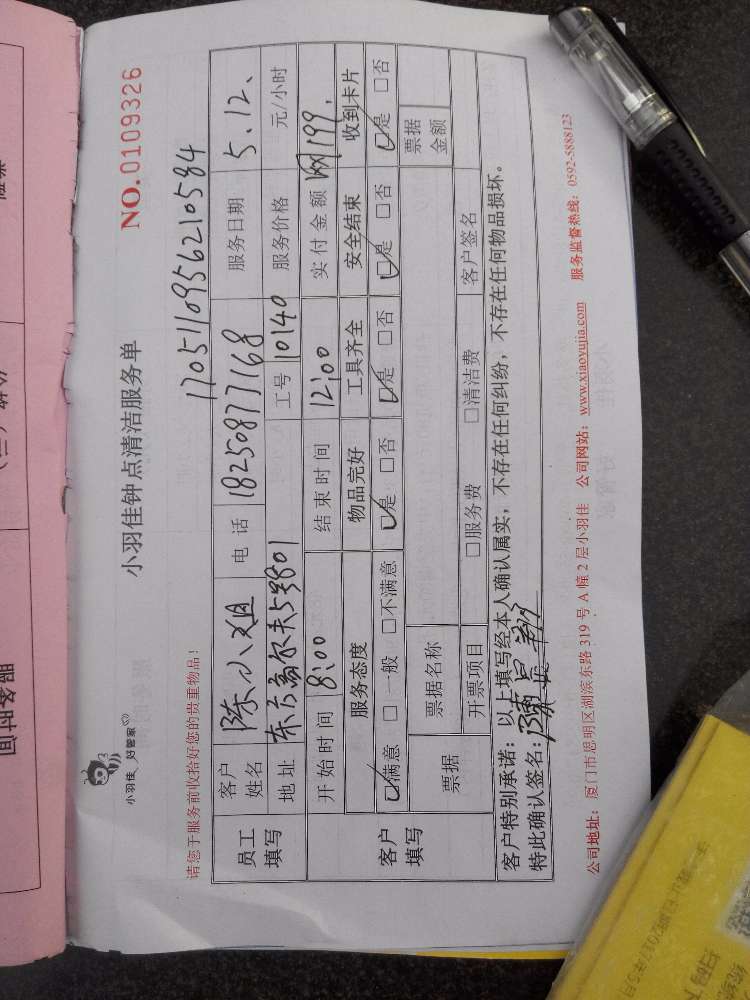 小羽佳 好管家
小羽佳钟点清洁服务单
NO.0109326
请您于服务前收拾好您的贵重物品！
17051109562210584
员工填写
客户姓名 陈小姐 电话 18250877168 服务日期 5.12、
地址 东方高尔夫59#801 工号 10140 服务价格 元/小时
客户填写
开始时间 8:00 结束时间 12:00 实付金额 网199.
服务态度 物品完好 工具齐全 安全结束 收到卡片
☑满意 □一般 □不满意 ☑是 □否 ☑是 □否 ☑是 □否 ☑是 □否
票据 票据名称 票据金额
开票项目 □服务费 □清洁费 客户签名
客户特别承诺：以上填写经本人确认属实，不存在任何纠纷，不存在任何物品损坏。
特此确认签名：
公司地址：厦门市思明区湖滨东路 319 号 A 幢 2 层小羽佳 公司网站：www.xiaoyujia.com 服务监督热线：0592-5888123
服务时间